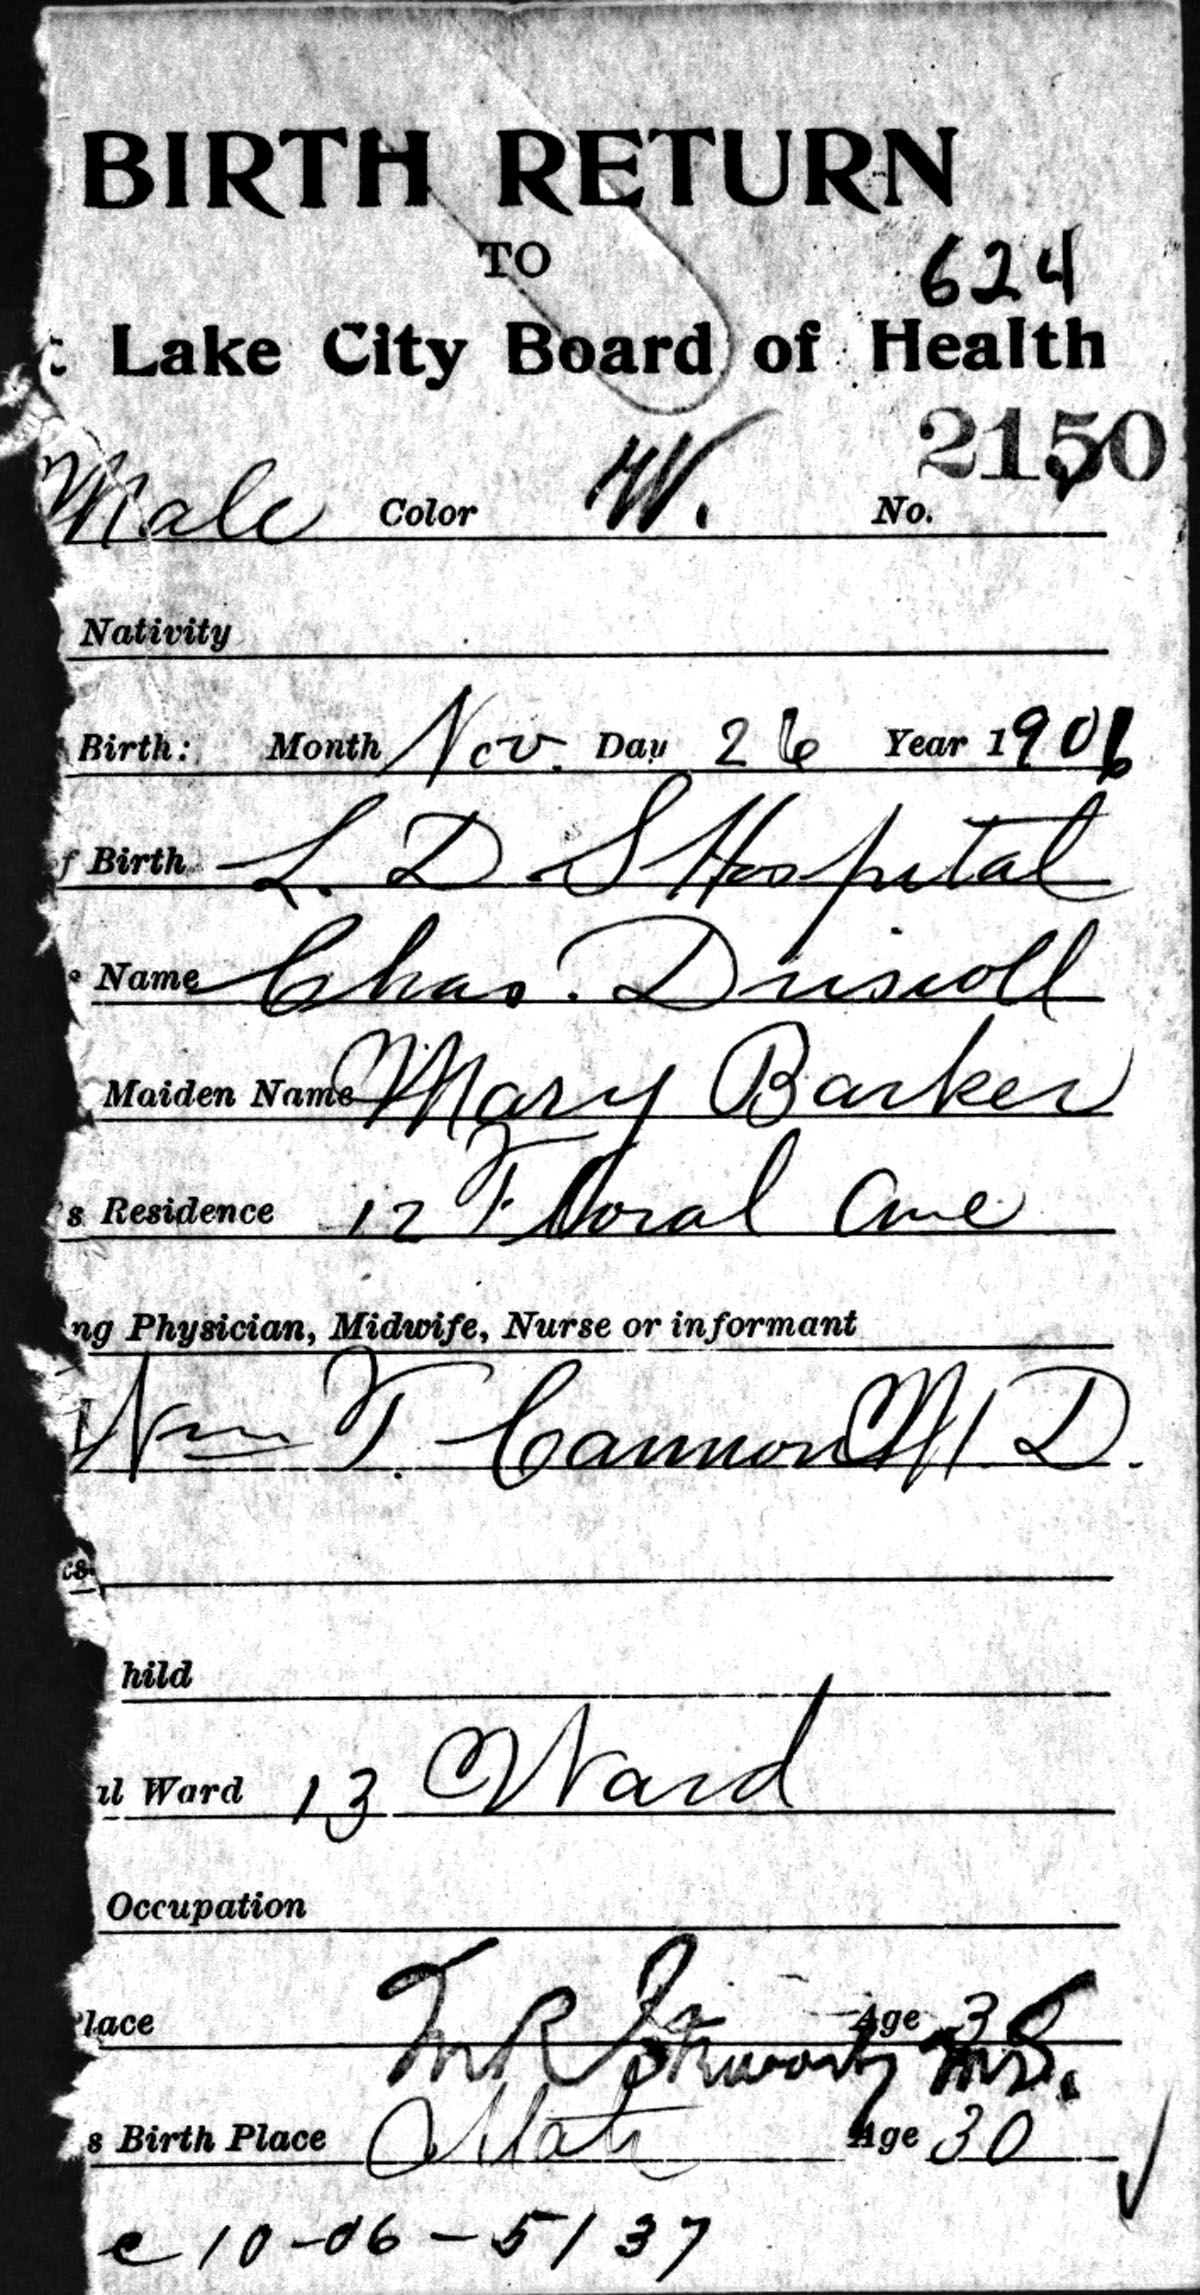 BIRTH RETURN
TO
624
Lake City Board of Health
2150
Male Color W. No.
Nativity
Birth: Month Nov. Day 26 Year 1906
f Birth L. D. S Hospital
Name Chas. Driscoll
Maiden Name Mary Barker
s Residence 12 Floral Ave
ng Physician, Midwife, Nurse or informant
Wm T. Cannon M. D.
cs
hild
al Ward 13 Ward
Occupation
lace Age
M R
s Birth Place Age 30
e 10-06-5137